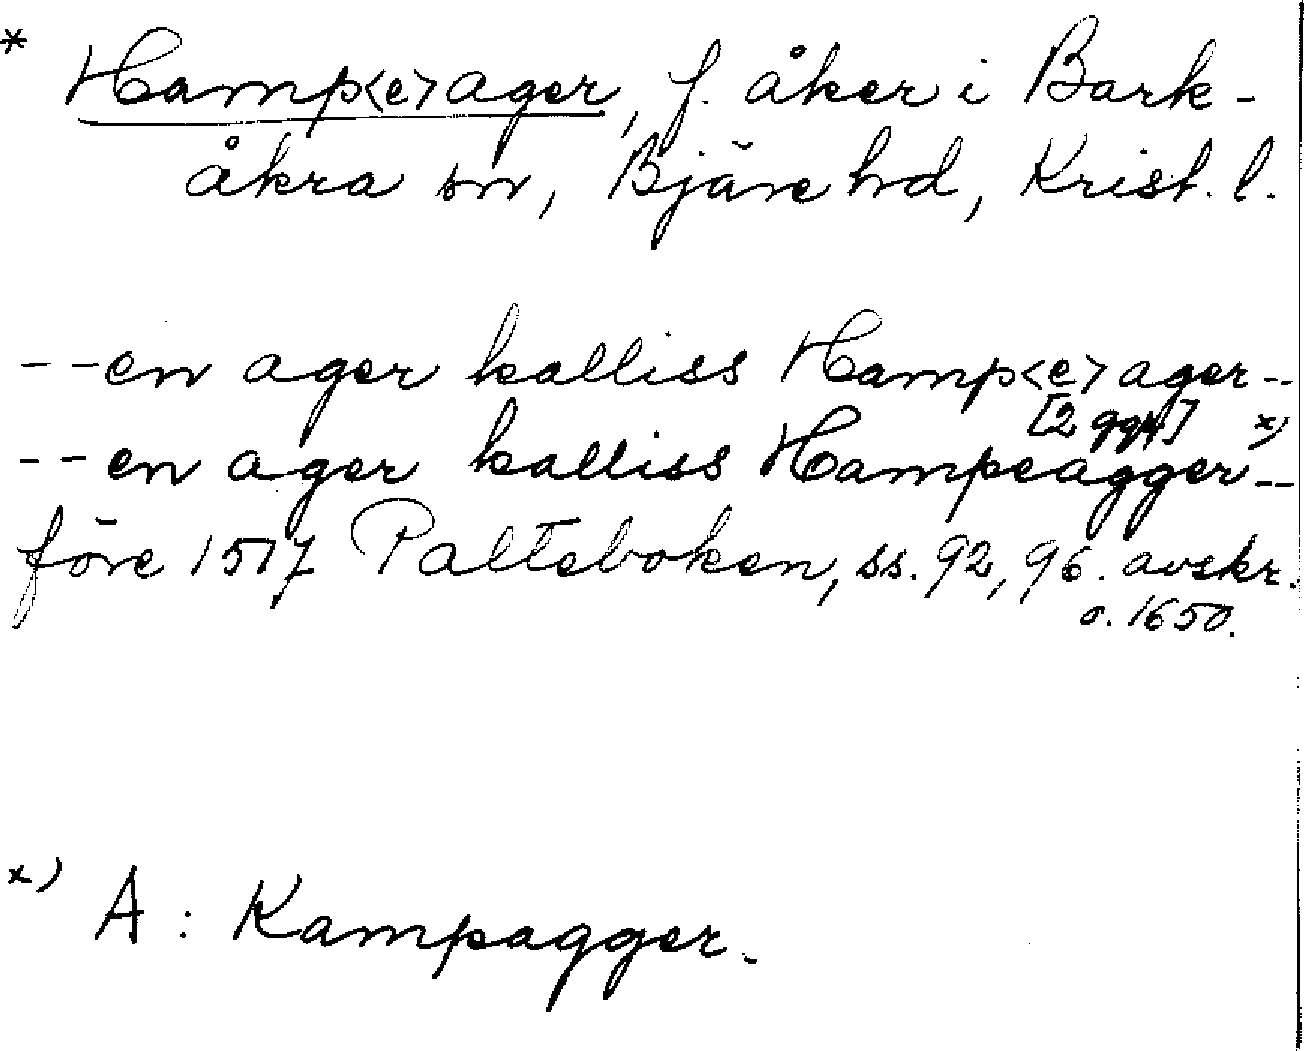 * Hamp<e>ager, f. åker i Bark-
åkra sn, Bjäre hd, Krist. l.
--en ager kalliss Hamp<e>ager--
[2 ggr] x)
--en ager kalliss Hampeagger--
före 1517 Palteboken, ss. 92, 96. avskr.
o. 1650.
x) A: Kampagger.